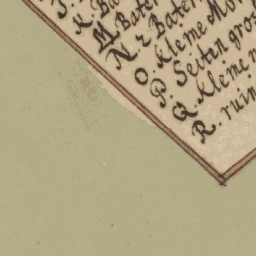 K. Ba
M Bater
N 2 Bater
O. kleme Mor
P. Seiten gros
Q. kleme m
R. ruin